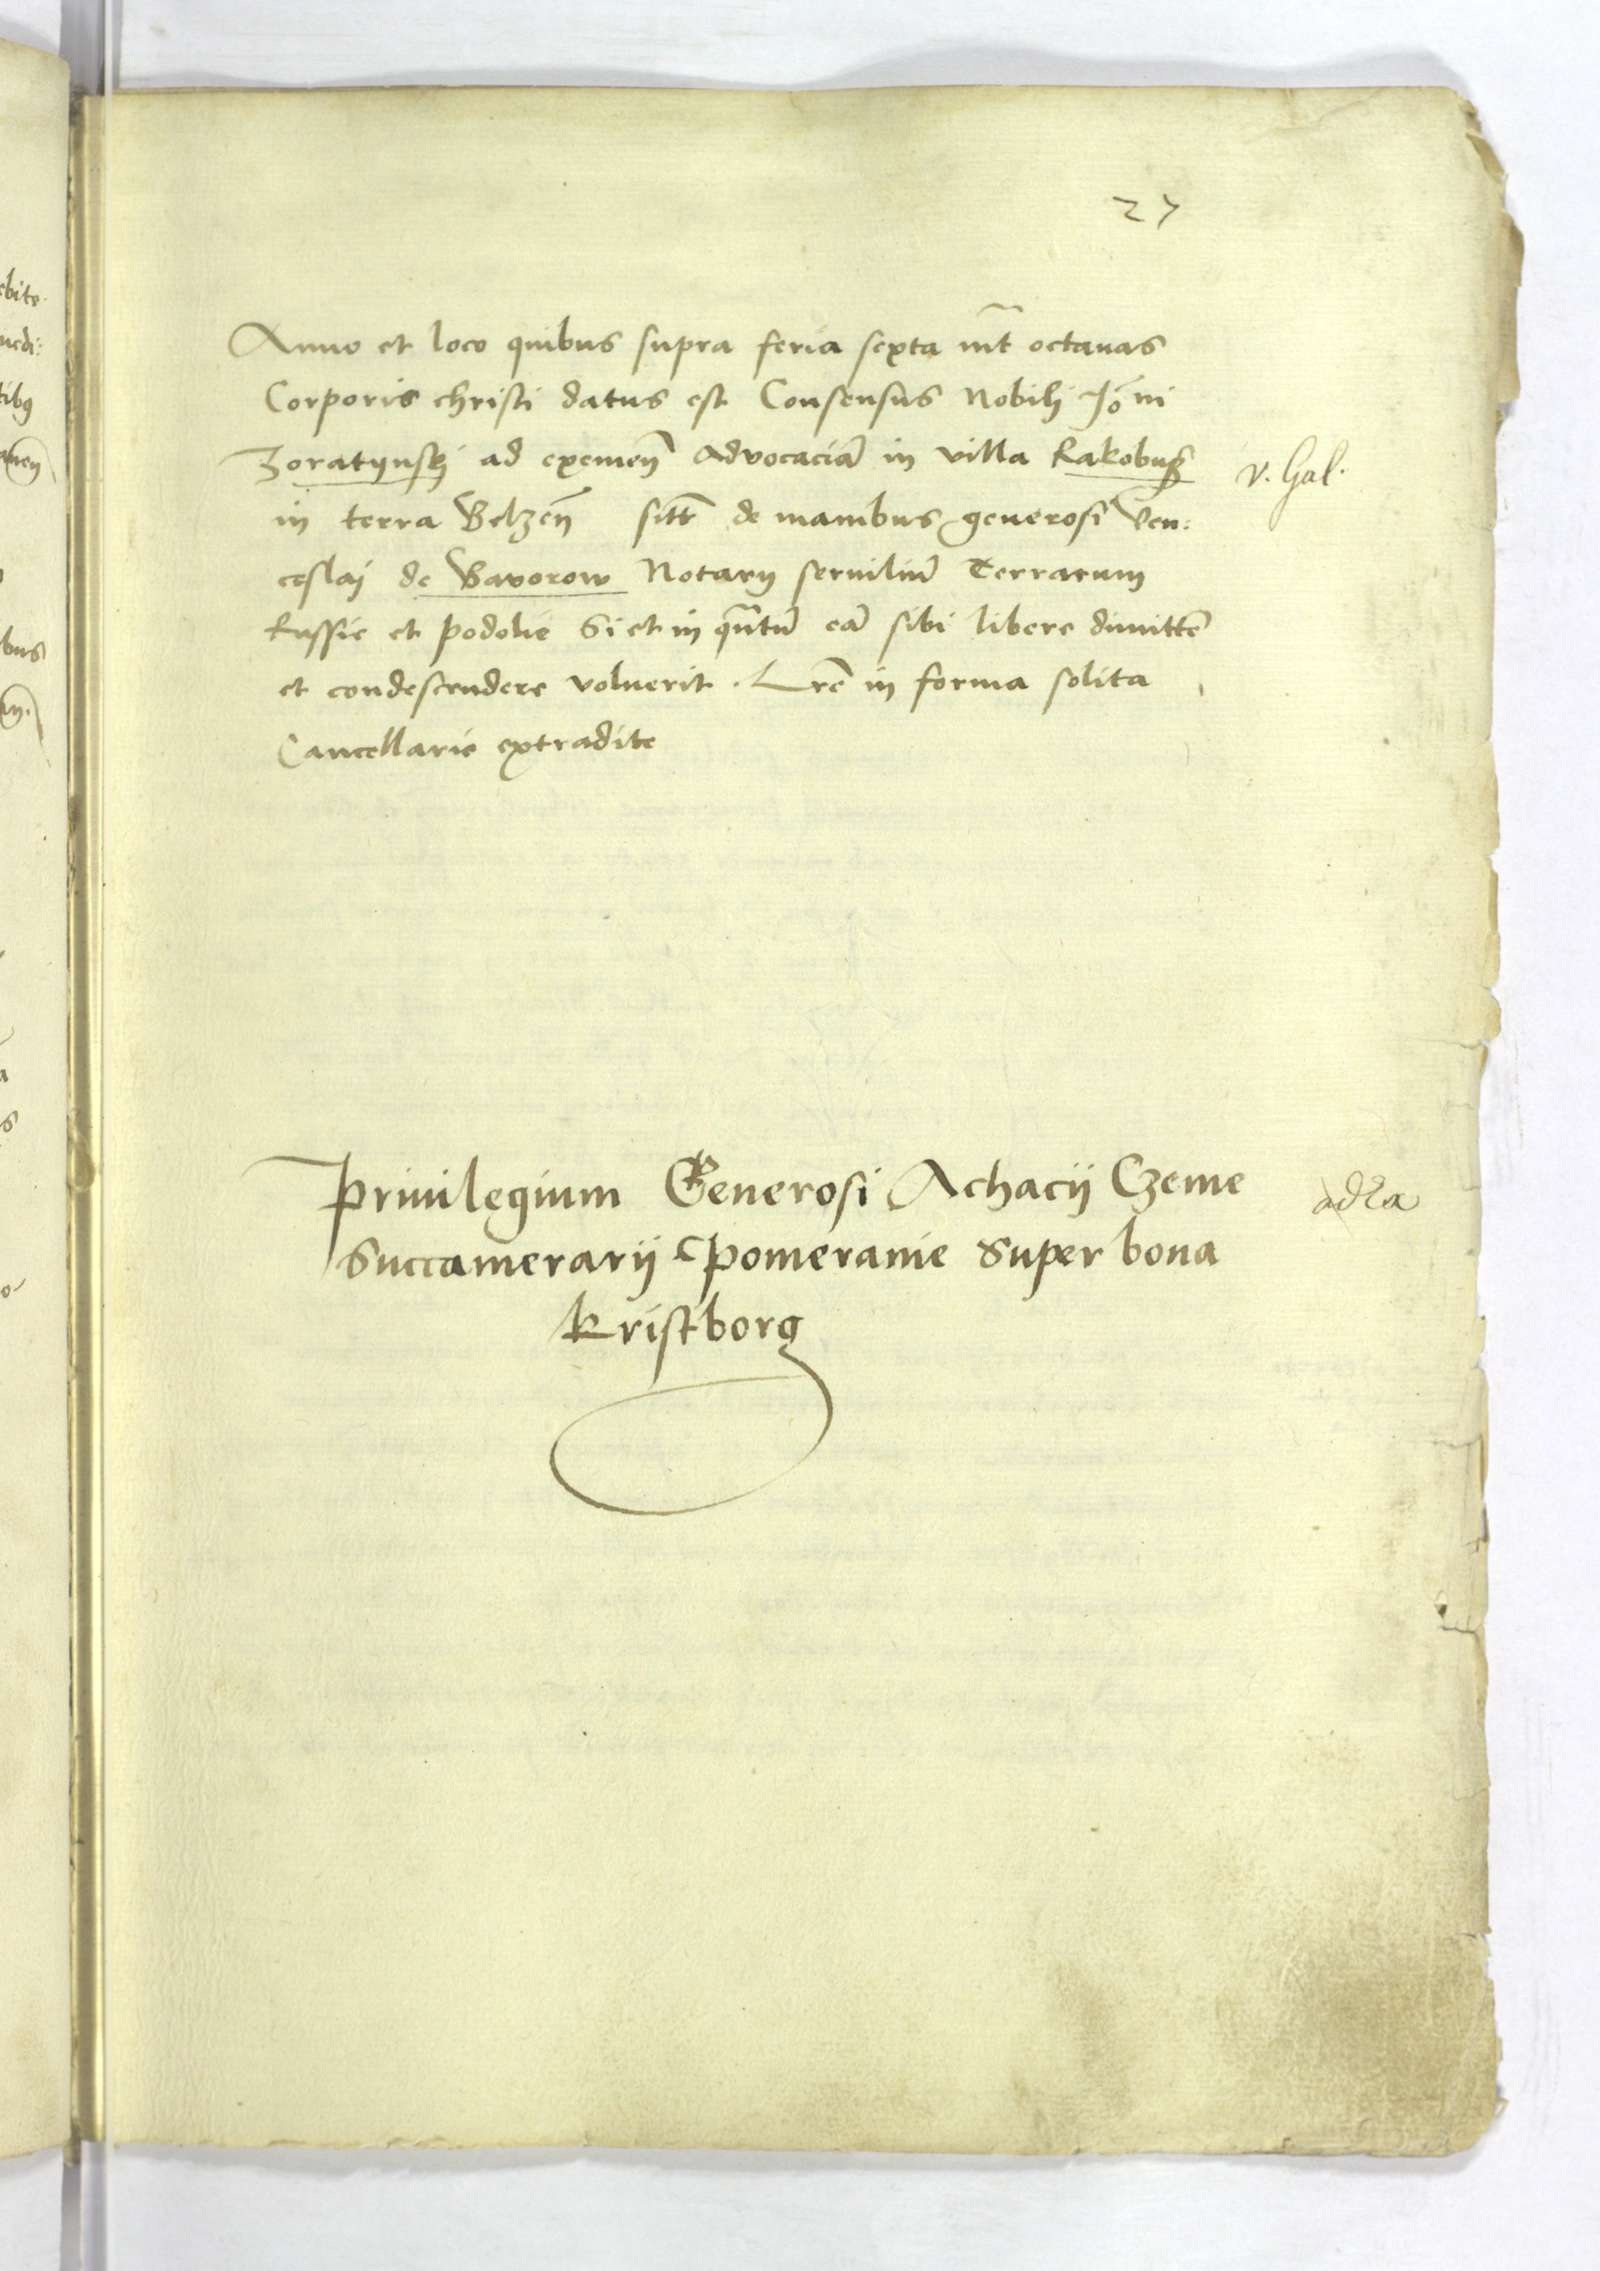 27
Anno et loco quibus supra feria sexta int̃ octauas
Corporis christi datus est Consensus Nobili Joñi
Zoratynskj ad exemeñ Advocaciã in villa Rakobuß
v. Gal.
in terra Belzeñ sitã de manibus generosi Ven:
ceslaj de Baworow Notarij seruiliũ Terrarum
Russie et podolie Si et in quãtũ eã sibi libere dimittẽ
et condescendere voluerit. Lrẽ in forma solita
Cancellarie extradite
Priuilegium Generosi Achacij Czeme
Succamerarij Pomeranie super bona
Kristborg